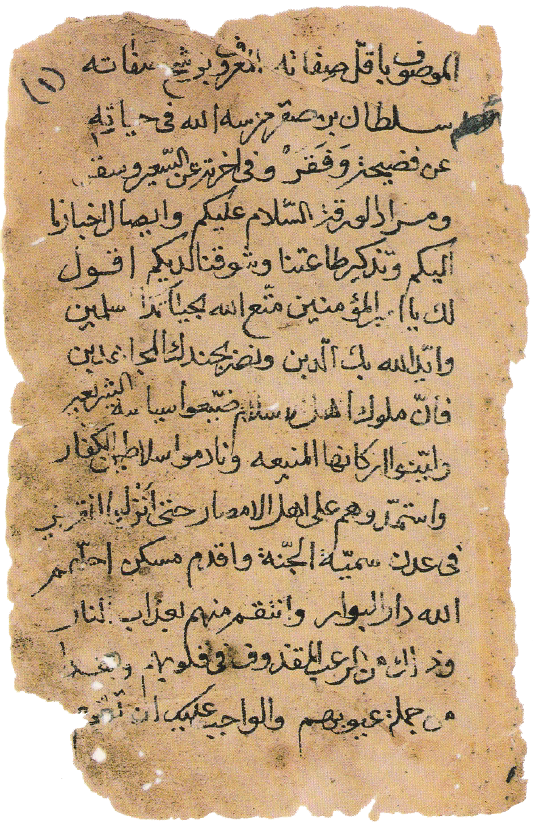 الموصوف باقل صفاته المعروف برشح صفاته
(١)
سلطان بن صقر حرسه الله فى حياته
عن فضيحة وفقر وفى اخرته عن السعير وسقر
ومراد الورقة السّلام عليكم وايصال اخبارنا
اليكم وتذكير طاعتنا وشوقنا لديكم اقول
لك يا امير المؤمنين متّع الله بحياتك المسلمين
وايّد الله بك الّدين ونصر بجندك المجاهدين
فانّ ملوك اهل الاسلام ضيّعوا سياسة الشريعه
واركانها المنيعه ونادموا سلاطين الكفار
واستمدّوهم على اهل الامصار حتى انزلوا
فى عدن سميّة الجنّة واقدم مسكن احلّهم
الله دار البوار وانتقم منهم بعذاب النار
وذلك من الرعب المقذوف فى قلوبهم وهذا
من جملة عيوبهم والواجب عليك ان